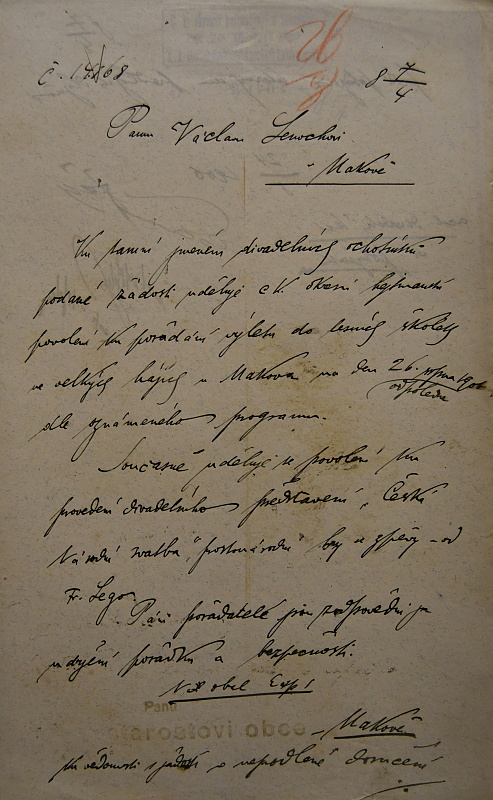 Panu Václavu
Makově
Ku tamní jménem divadelních ochotníků
podané žádosti uděluje c. k. okresní hejtmanství
povolení ku pořádání výletu do lesních školek
ve velkých hájích u Makova na den 26. srpna
odpoledne
dle oznámeného programu.
Současně uděluje se povolení ku
provedení divadelního představení „Česká
Národní svatba" prostonárodní hry se zpěvy od
Fr. Lego.
Páni pořadatelé jsou zodpovědni za
udržení pořádku a bezpečnosti.
Panu
starostovi obce
Makově
ku vědomosti s žádostí o neprodlené doručení